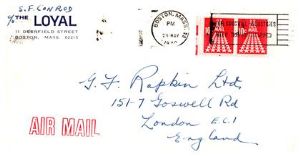 S.F. CONROD
% THE LOYAL
11 DEERFIELD STREET
BOSTON, MASS. 02215
BOSTON, MASS.
PM
10c 10c
G.F. Rapkin Ltd.
151-7 Goswell Rd
London E.C.1
England
AIR MAIL